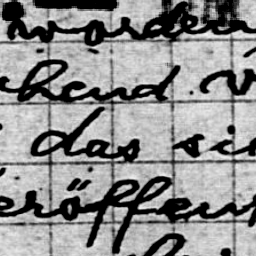 worden
hend. V
das sic
eröffen